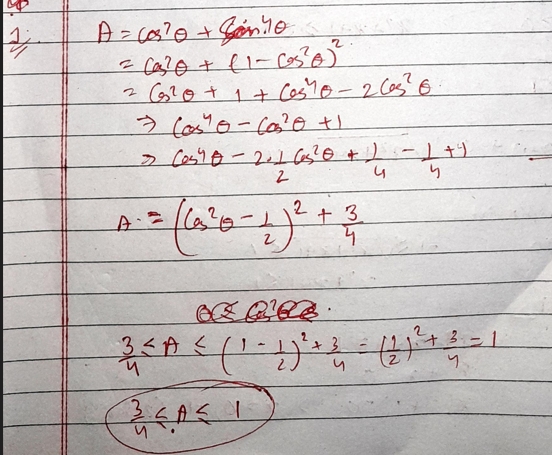 1.
A = cos²θ + Sin⁴θ
= cos²θ + (1 - cos²θ)²
= cos²θ + 1 + cos⁴θ - 2cos²θ
⇒ cos⁴θ - cos²θ + 1
⇒ cos⁴θ - 2·1/2 cos²θ + 1/4 - 1/4 + 1
A = (cos²θ - 1/2)² + 3/4
3/4 ≤ A ≤ (1 - 1/2)² + 3/4 = (1/2)² + 3/4 = 1
3/4 ≤ A ≤ 1